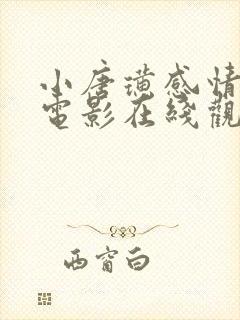 小唐璜感情
電影在綫觀
西窗白